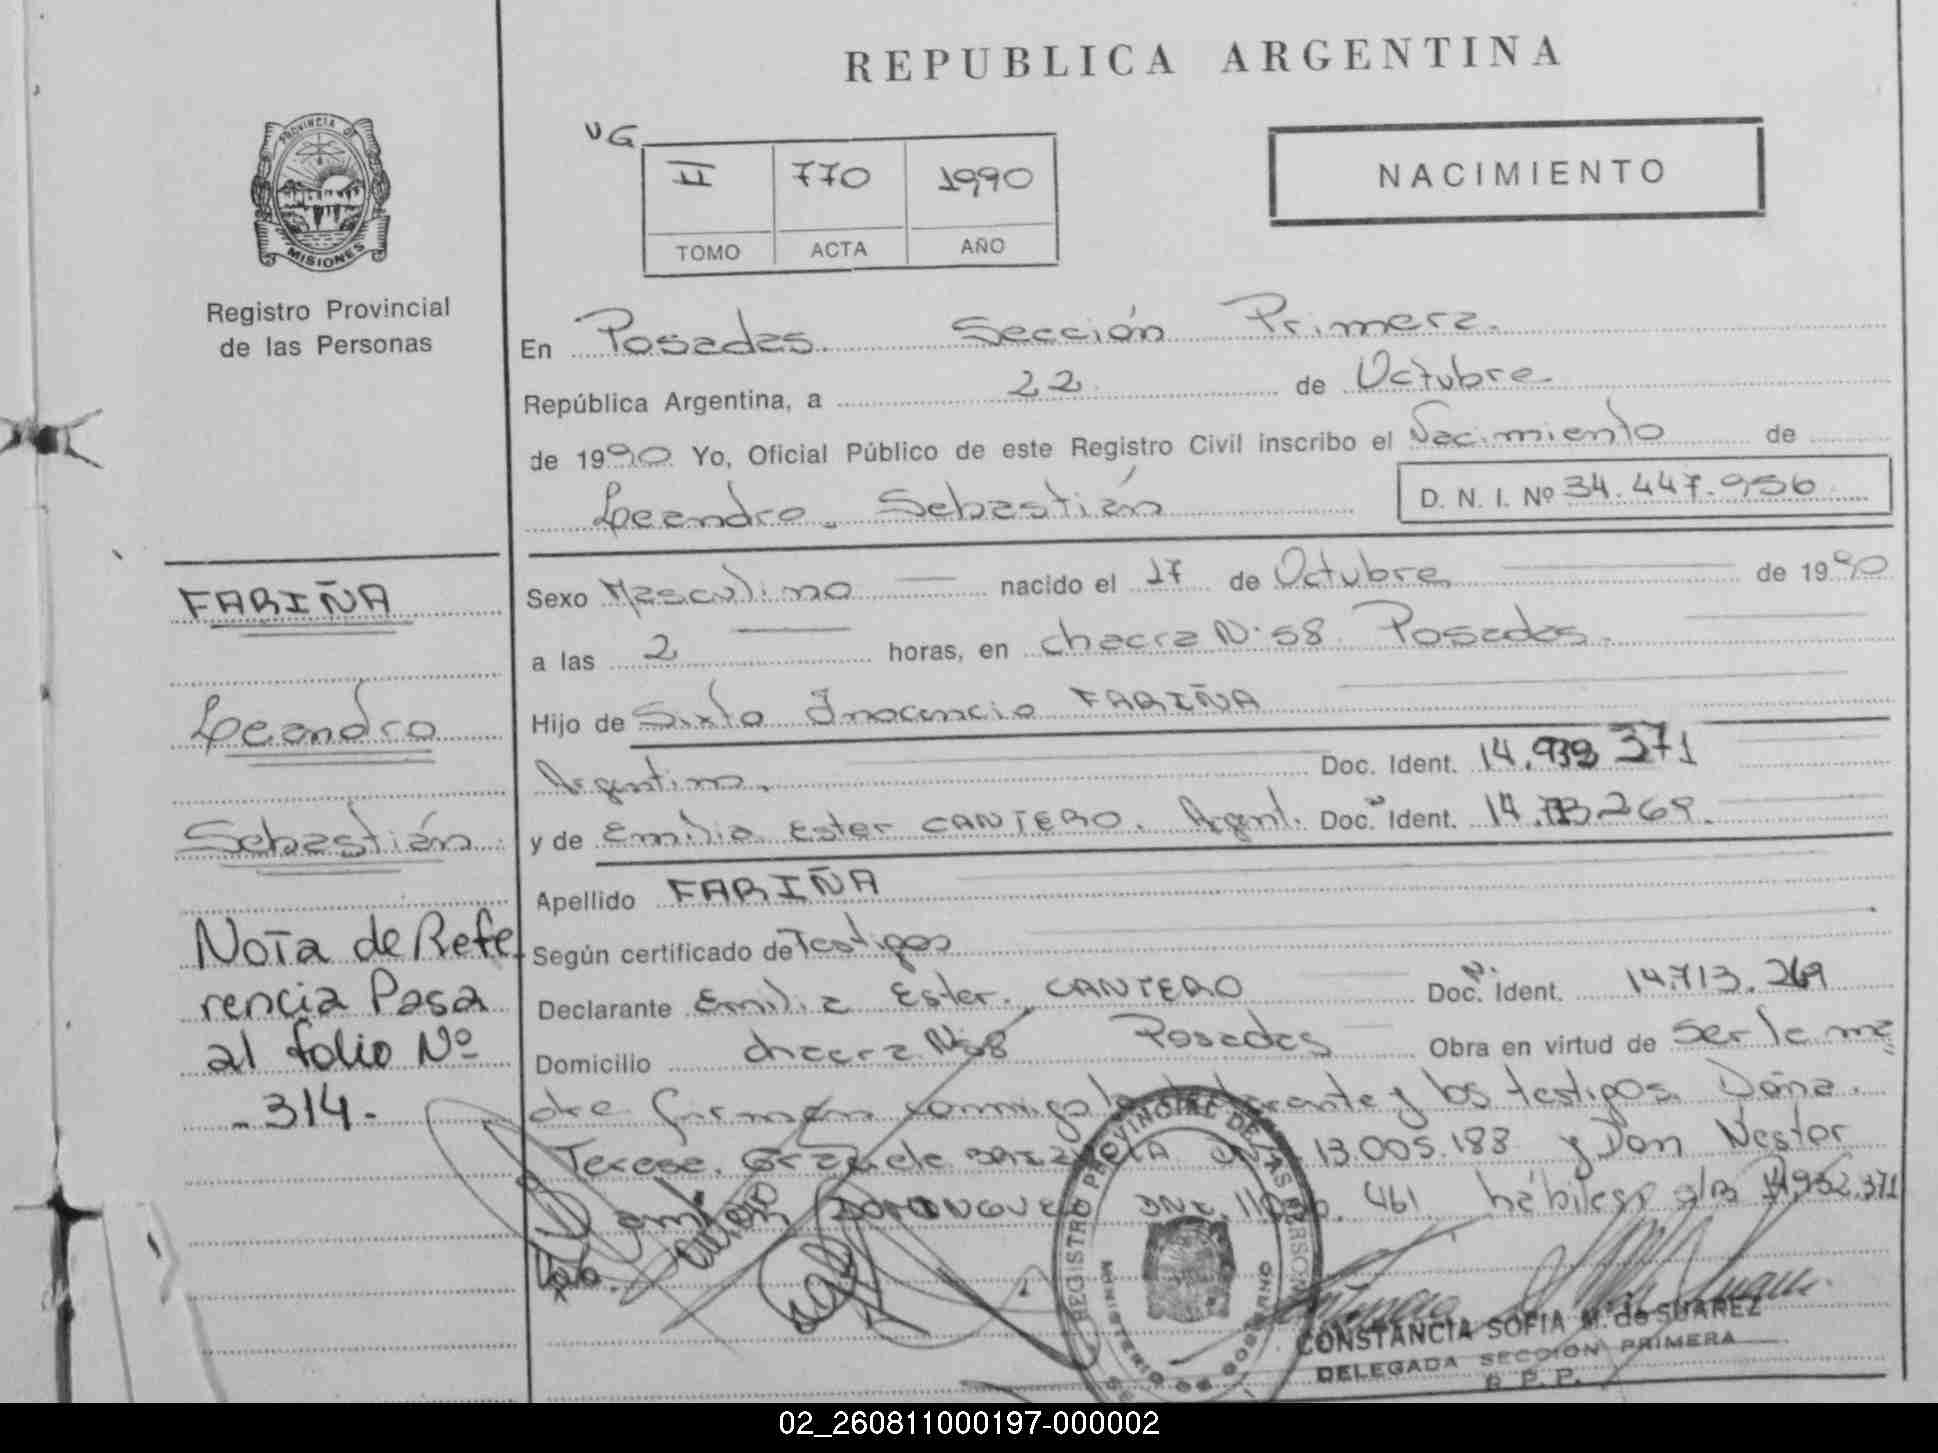 REPUBLICA ARGENTINA
PROVINCIA DE
MISIONES
Registro Provincial
de las Personas
VG
II 770 1990
TOMO ACTA AÑO
NACIMIENTO
En Posadas. Sección Primera.
República Argentina, a 22 de Octubre
de 1990 Yo, Oficial Público de este Registro Civil inscribo el Nacimiento de
Leandro Sebastián D. N. I. Nº 34.447.956
FARIÑA
Leandro
Sebastián
Nota de Refe
rencia Pasa
al folio Nº
-314-
Sexo Masculino nacido el 17 de Octubre de 1990
a las 2 horas, en chacra Nº 58 Posadas.
Hijo de Sixto Inocencio FARIÑA
Argentino. Doc. Ident. 14.932 371
y de Emilia Ester CANTERO. Argent. Doc. Ident. 14.713.269.
Apellido FARIÑA
Según certificado de Testigos
Declarante Emilia Ester. CANTERO Doc. Ident. 14.713.269
Domicilio chacra Nº 58 Posadas Obra en virtud de ser la ma
dre firman conmigo la y los testigos. Doña
Teresa. de 13.005.188 y Don Nestor
DOMINGUEZ DNI. 461 hábiles. 14.932.371
REGISTRO PROVINCIAL DE LAS PERSONAS
MINISTERIO DE GOBIERNO
CONSTANCIA SOFIA M. de SUAREZ
DELEGADA SECCION PRIMERA
R. P. P.
02_260811000197-000002